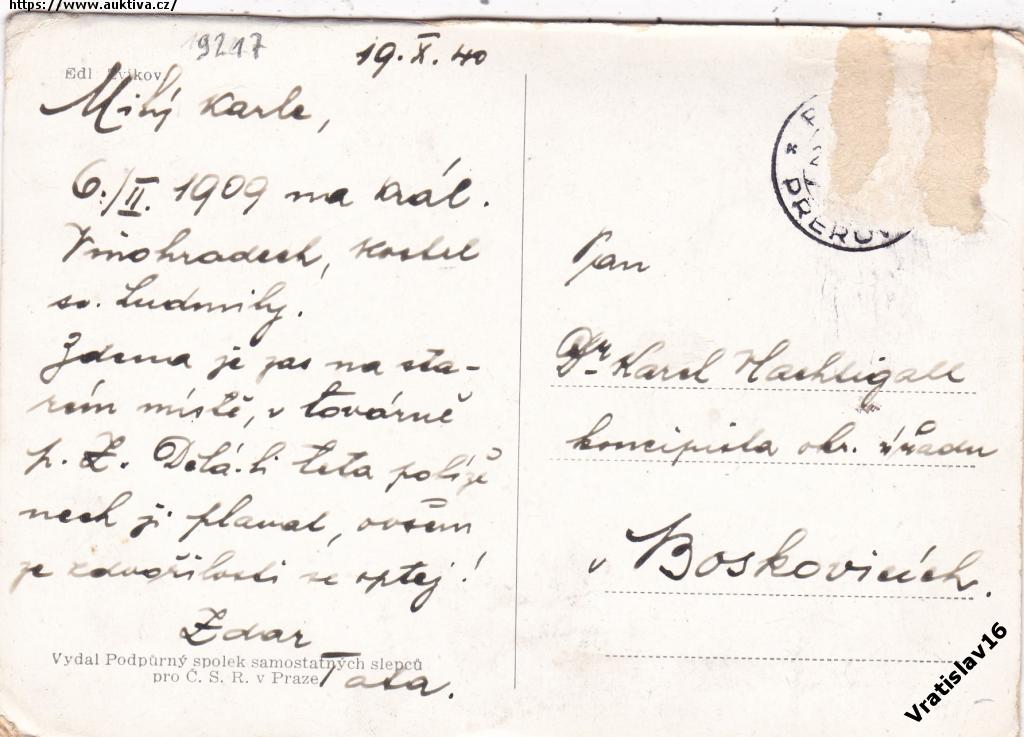 https://www.auktiva.cz/
9217
19.X.40
Edl Zvíkov.
Milý Karle,
6./II. 1909 na král.
Vinohradech, kostel
sv. Ludmily.
Zdena je zas na sta-
rém místě, v továrně
p. Z. Dělá-li teta potíže
nech ji plavat, ovšem
ze zdvořilosti se optej!
Zdar
Tata.
Vydal Podpůrný spolek samostatných slepců
pro Č. S. R. v Praze
PŘEROV
Pan
Dr. Karel Nachtigall
koncipista okr. úřadu
v Boskovicích.
Vratislav16